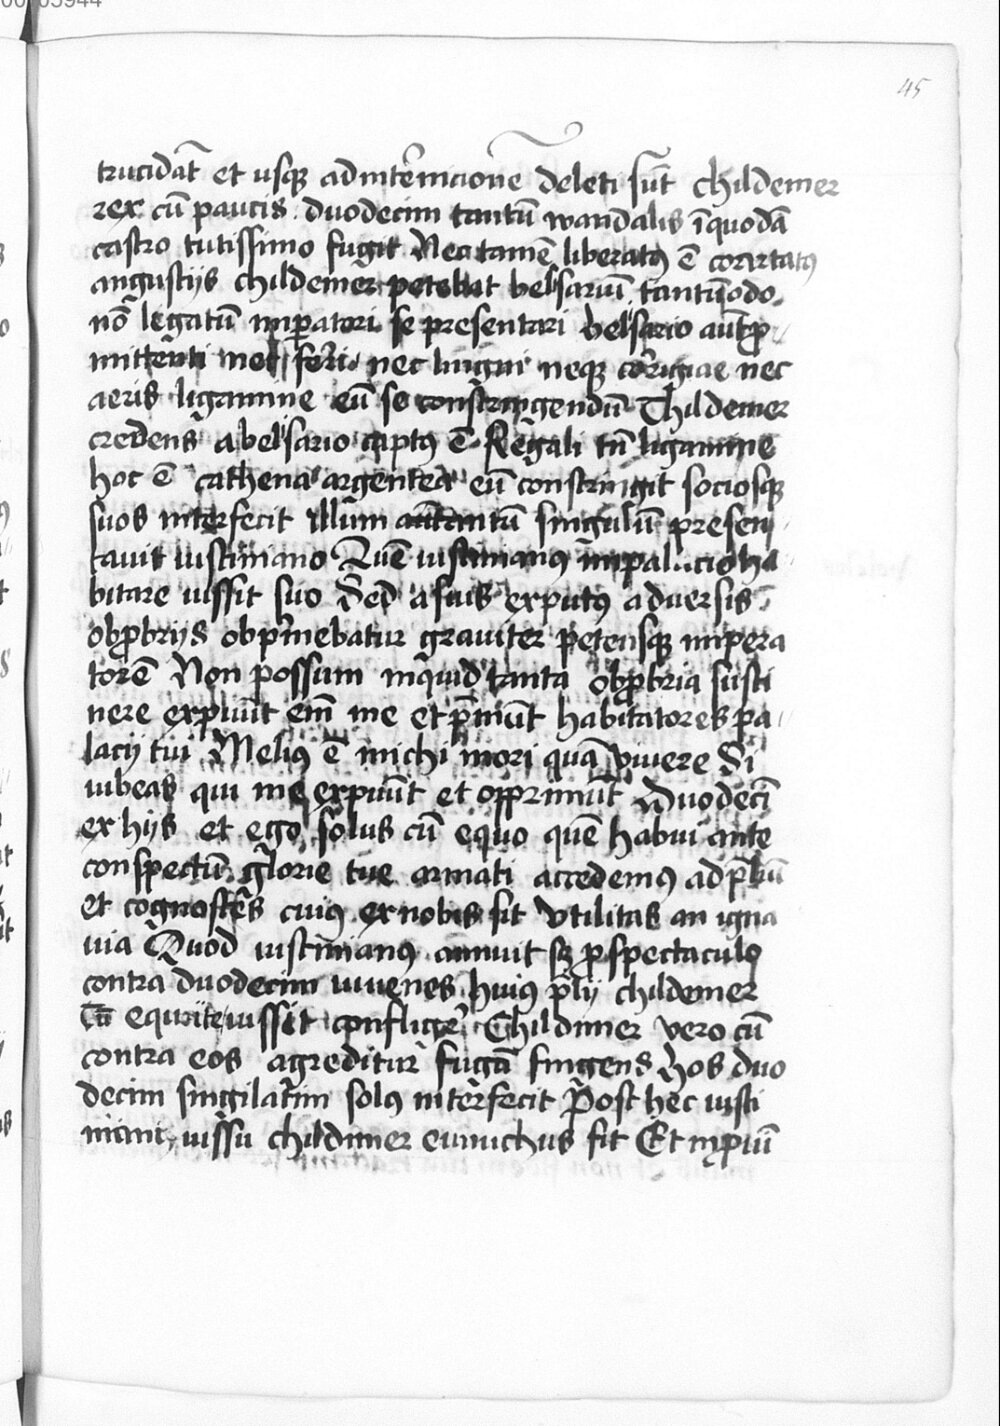 45
trucidat̄ et usqꝫ ad int̄emcionē deleti sūt childemer
rex cū paucis duodecim tantū wandalis ī quodā
castro tutissimo fugit Nec tamē liberatꝰ ē coartatꝰ
angustijs childemer petebat belsariū tantūodo
nō legatū imꝑatori se presentari belsario aūt ꝓ
mittenti nec ferri nec lingni neqꝫ corrigiae nec
aeris ligamine eū se constringendū Thildemer
credens a belsario captꝰ ē Regali tn̄ ligamine
hoc ē cathena argentea eū constringit sociosqꝫ
suos interfecit illum aūt tantū singulū presen
tauit iustiniano Quē iustinianꝰ in palacio ha
bitare iussit suo Sed a suis exputꝰ aduersis
obꝓbrijs obpͥmebatur grauiter petensqꝫ impera
torē Non possum inquid tanta obꝓbria susti
nere expuūt em̄ me et pͥmūt habitatores pa
lacij tui Melius ē michi mori quā viuere Si
iubeas qui me expuūt et opprimūt Duodecī
ex hijs et ego solus cū equo quē habui ante
conspectū glorie tue armati accedemꝰ ad p̄liū
et cognosces cuiꝰ ex nobis sit vtilitas an igna
uia Quod iustinianꝰ annuit sꝫ ꝓ spectaculo
contra duodecim iuuenes huiꝰ p̄lij childemer
iussit confliger̄ Childimer vero cū
contra eos agreditur fugā fingens Hos duo
decim singilatim solꝰ interfecit Post hec iusti
niani iussu childimer eunuchus fit Et